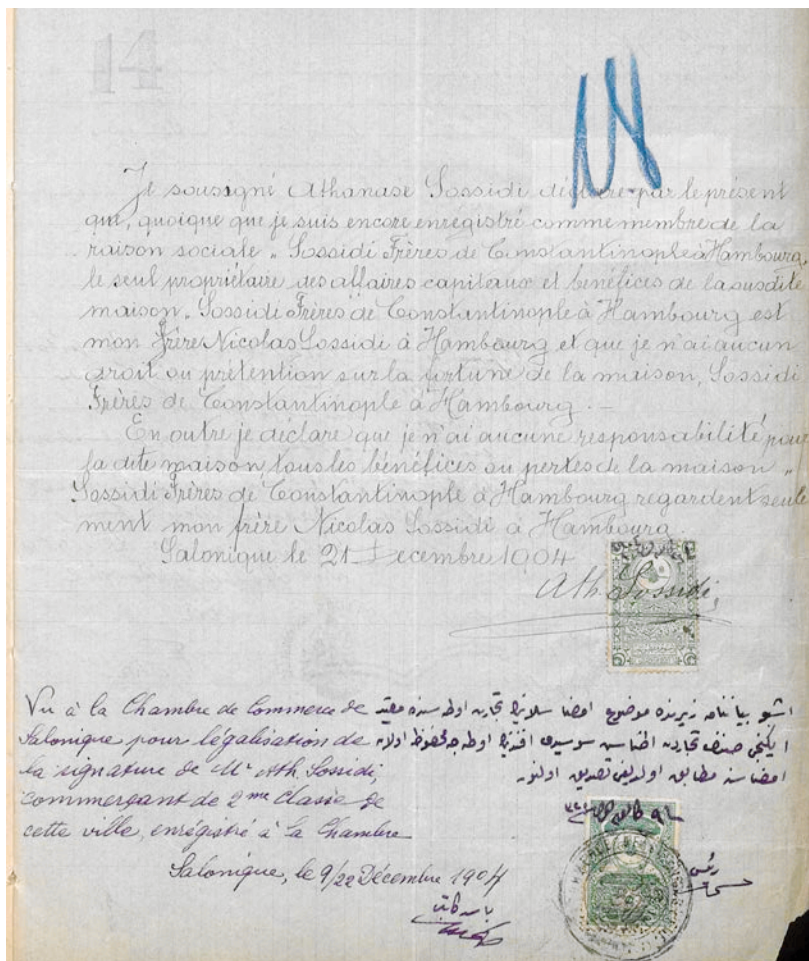 Je soussigné Athanase Sossidi déclare par le présent
que, quoique que je suis encore enregistré comme membre de la
raison sociale „ Sossidi Frères de Constantinople à Hambourg,
le seul propriétaire des affaires capitaux et bénéfices de la susdite
maison „ Sossidi Frères de Constantinople à Hambourg est
mon frère Nicolas Sossidi à Hambourg et que je n'ai aucun
droit ou prétention sur la fortune de la maison, Sossidi
Frères de Constantinople à Hambourg. —
En outre je déclare que je n'ai aucune responsabilité pour
la dite maison, tous les bénéfices ou pertes de la maison „
Sossidi Frères de Constantinople à Hambourg regardent seule
ment mon frère Nicolas Sossidi à Hambourg.
Salonique le 21 Decembre 1904
Ath Sossidi,
Vu à la Chambre de Commerce de
Salonique pour légalisation de
la signature de Mr Ath. Sossidi,
commerçant de 2me Classe de
cette ville, enrégistré à la Chambre
Salonique, le 9/22 Décembre 1904
اشبو بياننامه زيرنده موضوع امضا سلانيك تجارت اوطه سنده مقيد
ايكنجى صنف تجاردن اطناس سوسيدى افندينك اوطه جه محفوظ اولان
امضاسنه مطابق اولديغى تصديق اولنور
رئيس
باش كاتب